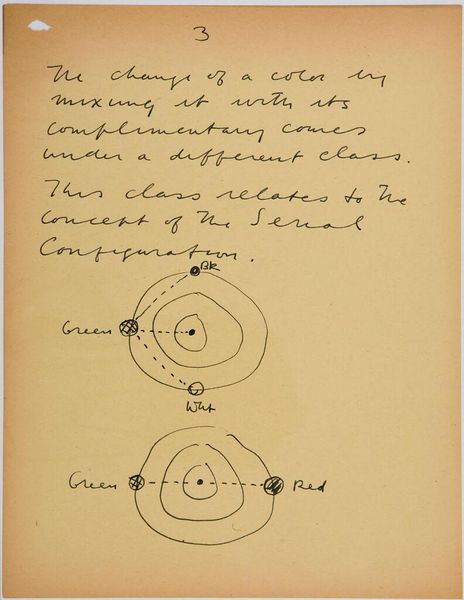 3
The change of a color by
mixing it with its
complimentary comes
under a different class.
This class relates to the
concept of the Serial
Configuration.
BK
Green
Wht
Green
Red